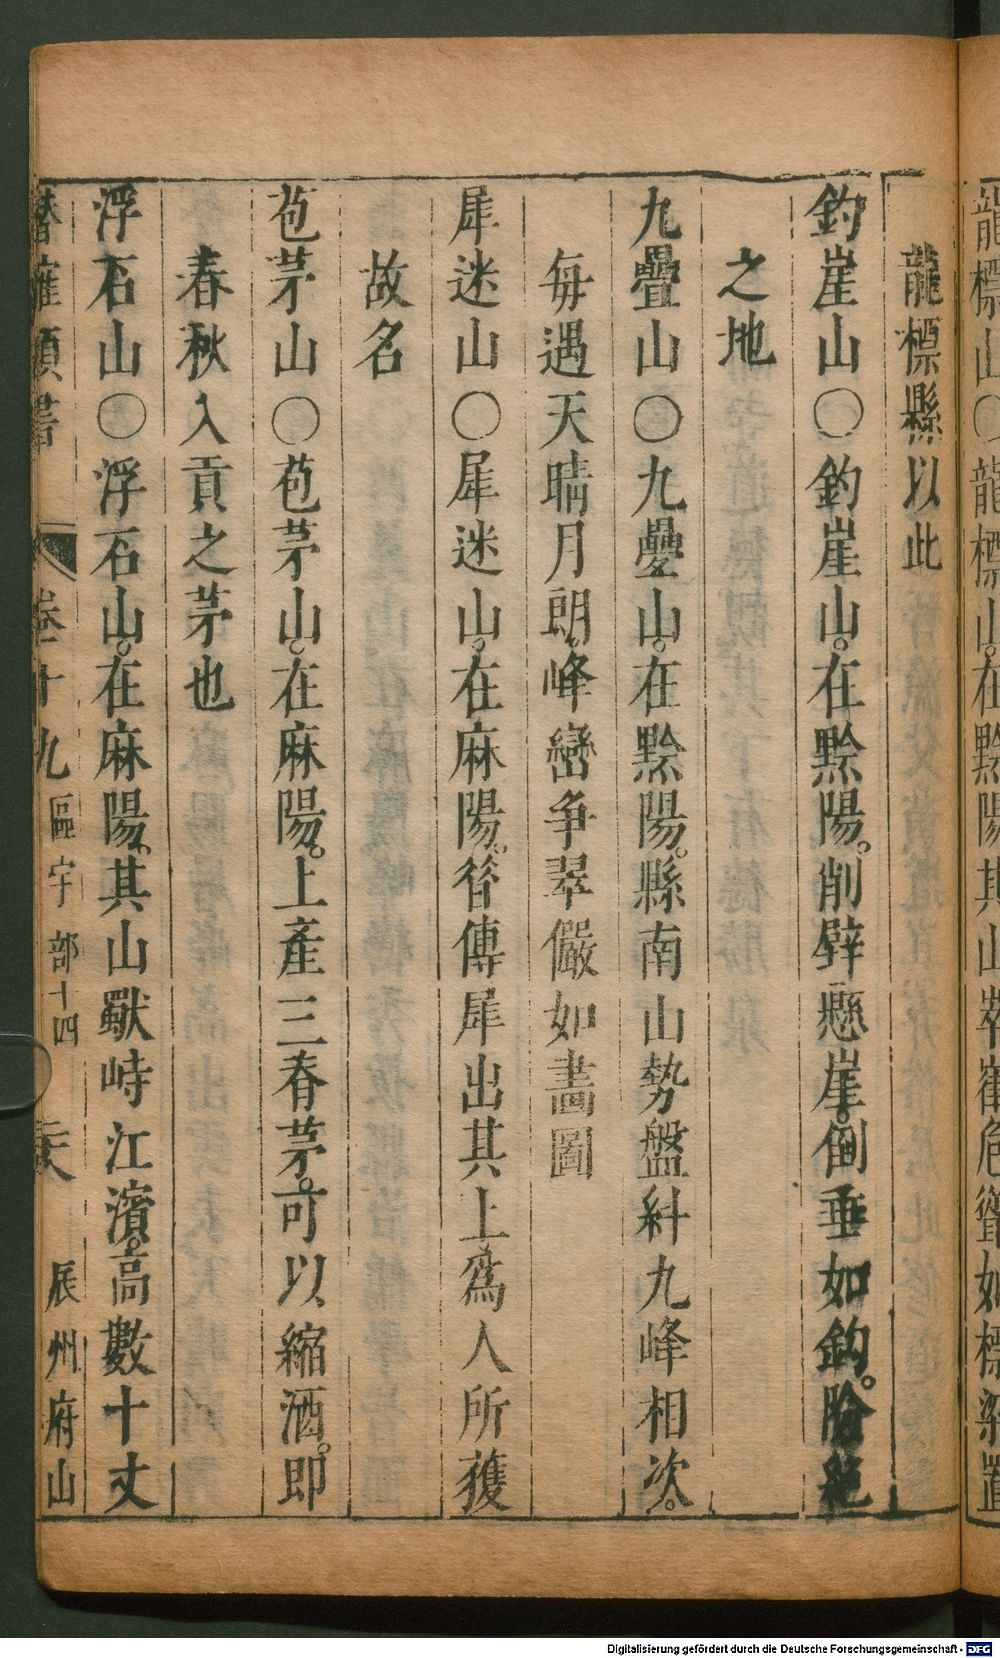 龍標山〇龍標山。在黔陽其山峷崔危聳如標梁置
龍標縣以此
釣崖山〇釣崖山。在黔陽。削壁懸崖。倒垂如鈎。險絕
之地
九疊山〇九疊山。在黔陽。縣南山勢盤紏九峰相次。
每遇天晴月朗。峰巒争翠儼如畵圖
犀迷山〇犀迷山。在麻陽。昝傳犀出其上爲人所獲
故名
苞茅山〇苞茅山。在麻陽。上產三春茅。可以縮酒。即
春秋入貢之茅也
浮石山〇浮石山。在麻陽、其山獸峙江濱。高數十丈
潛確類書 卷十九 區宇部十四 二六 辰州府山
Digitalisierung gefördert durch die Deutsche Forschungsgemeinschaft - DFG